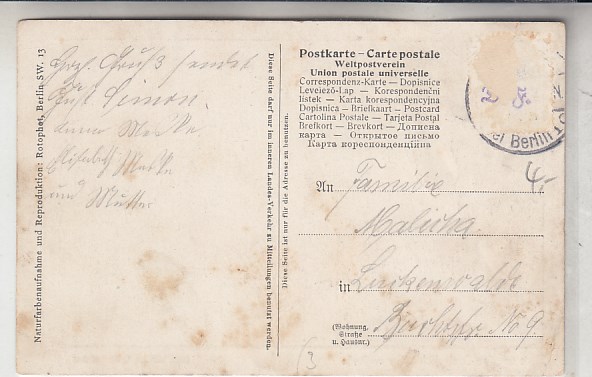 Naturfarbenaufnahme und Reproduktion: Rotophot, Berlin, SW. 13
Herzl. Gruß sendet
Simon.
und Mutter
Diese Seite darf nur im inneren Landes-Verkehr zu Mitteilungen benutzt werden.
Diese Seite ist nur für die Adresse zu benutzen.
Postkarte – Carte postale
Weltpostverein
Union postale universelle
Correspondenz-Karte — Dopisnice
Levelező-Lap — Korespondenční
lístek — Karta korespondencyjna
Dopisnica — Briefkaart — Postcard
Cartolina Postale — Tarjeta Postal
Brefkort — Brevkort — Дописна
карта — Открытое письмо
Карта кореспонденційна
bei Berlin
4,-
An Familie
in Luckenwalde
(Wohnung,
Straße
u. Hausnr.)
No 9.
(3